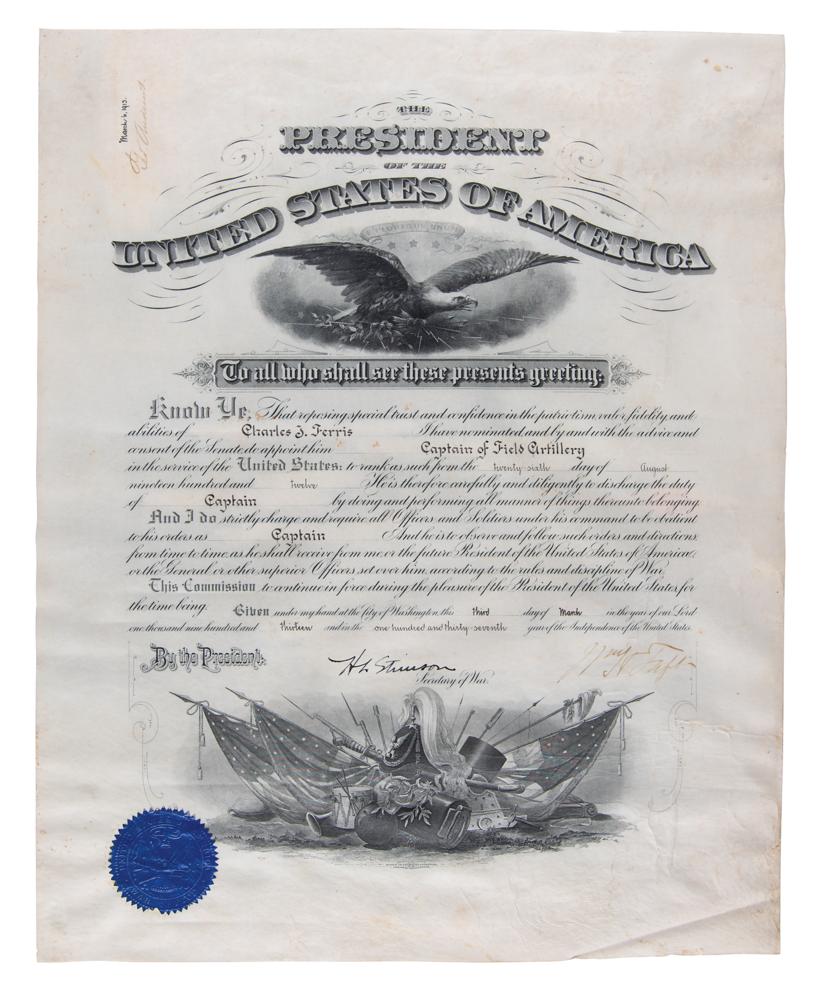 March 6, 1913.
THE
PRESIDENT
OF THE
UNITED STATES OF AMERICA
To all who shall see these presents greeting:
Know Ye, That reposing special trust and confidence in the patriotism, valor, fidelity, and
abilities of Charles J. Ferris I have nominated and by and with the advice and
consent of the Senate do appoint him Captain of Field Artillery
in the service of the United States: to rank as such from the twenty sixth day of August
nineteen hundred and twelve He is therefore carefully and diligently to discharge the duty
of Captain by doing and performing all manner of things thereunto belonging.
And I do strictly charge and require all Officers and Soldiers under his command to be obedient
to his orders as Captain And he is to observe and follow such orders and directions,
from time to time, as he shall receive from me, or the future President of the United States of America,
or the General or other superior Officers set over him, according to the rules and discipline of War.
This Commission to continue in force during the pleasure of the President of the United States, for
the time being. Given under my hand at the City of Washington, this third day of March in the year of our Lord
one thousand nine hundred and thirteen and in the one hundred and thirty-seventh year of the Independence of the United States.
By the President:
Wm H Taft
H L Stimson
Secretary of War.